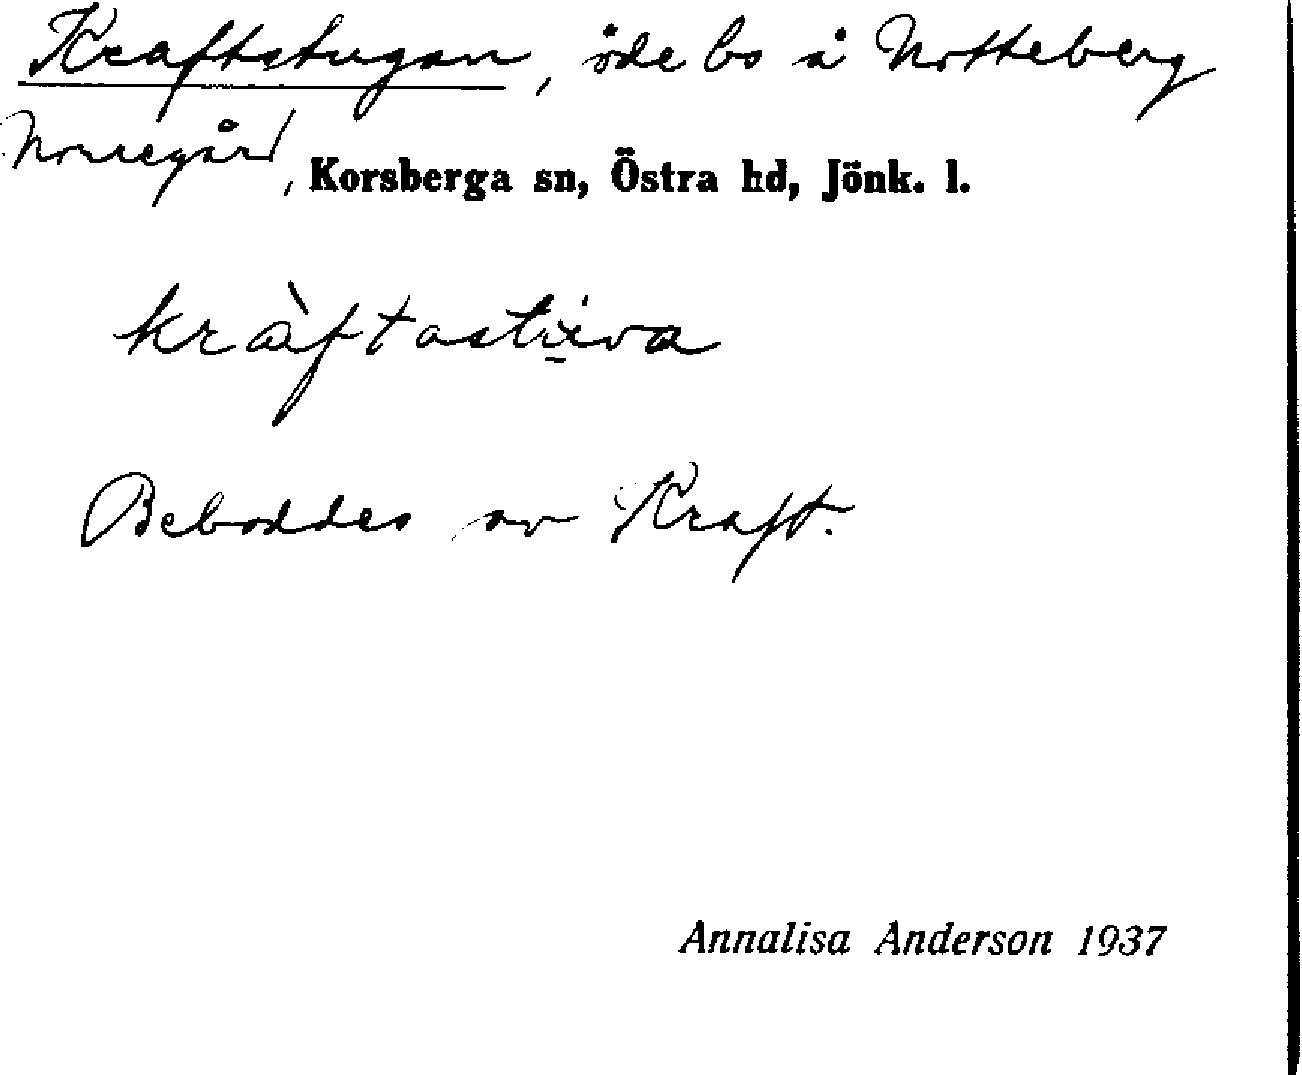 Kraftstugan, öde bo å Notteberg
Norregård, Korsberga sn, Östra hd, Jönk. l.
Beboddes av Kraft.
Annalisa Anderson 1937